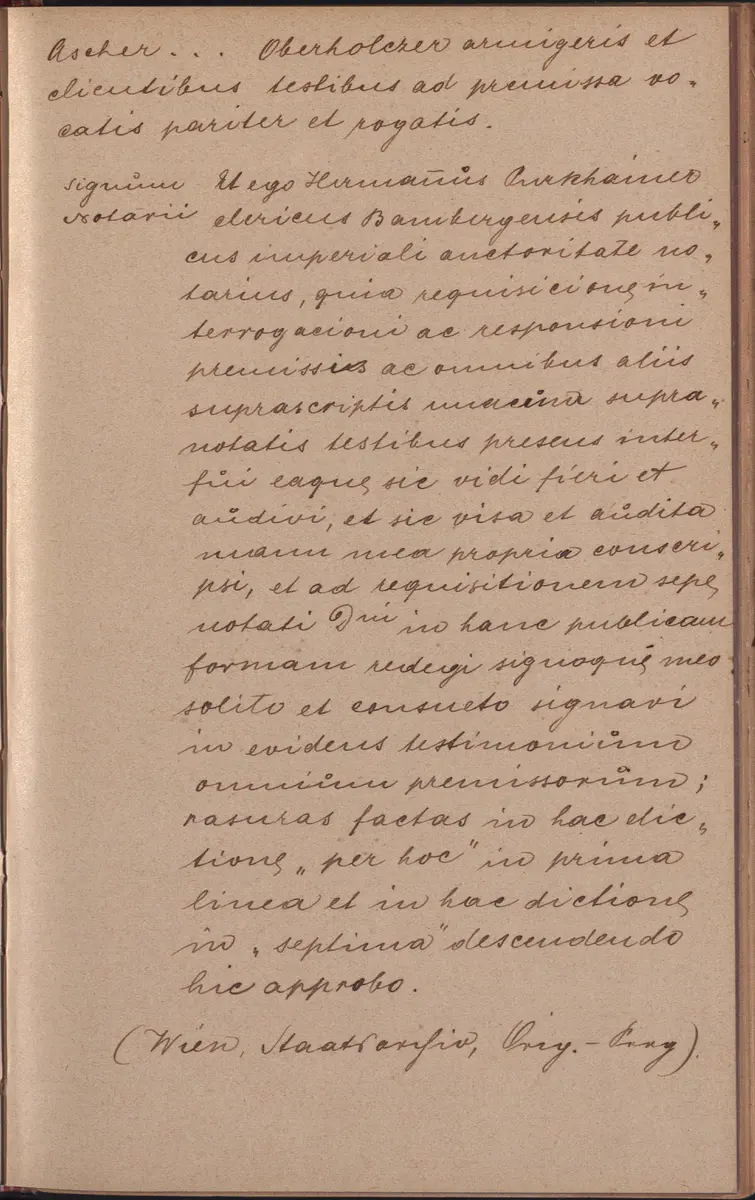 Ascher . . . Oberholczer armigeris et
clientibus testibus ad premissa vo-
catis pariter et rogatis.
signum Et ego Hermanus Purkhaimer
Notarii clericus Bambergensis publi„
cus imperiali auctoritate no„
tarius, quia requisicionę in„
terrogacioni ac responsioni
premissis ac omnibus aliis
suprascriptis unacum supra„
notatis testibus presens inter„
fui eaquę sic vidi fieri et
audivi, et sic visa et audita
manu mea propria conscri„
psi, et ad requisitionem sepę
notati Dni in hanc publicam
formam redegi signoquę meo
solito et consueto signavi
in evidens testimonium
omnium premissorum;
rasuras factas in hac dic„
tionę „per hoc" in prima
linea et in hac dictionę
in „septima" descendendo
hic approbo.
(Wien, Staatsarchiv, Orig.-Perg).